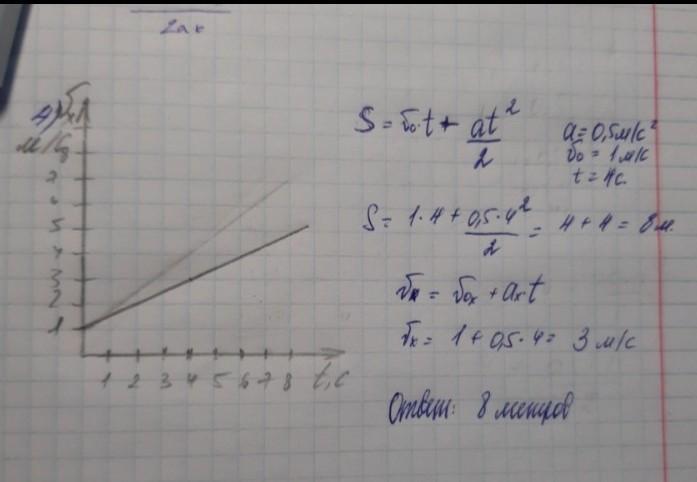 2ax
4) υx
м/с
8
7
6
5
4
3
2
1
1 2 3 4 5 6 7 8 t, с
S = υ₀·t + at²/2
a = 0,5 м/с²
υ₀ = 1 м/с
t = 4 с.
S = 1·4 + 0,5·4²/2 = 4 + 4 = 8 м.
υx = υ₀x + ax·t
υx = 1 + 0,5·4 = 3 м/с
Ответ: 8 метров